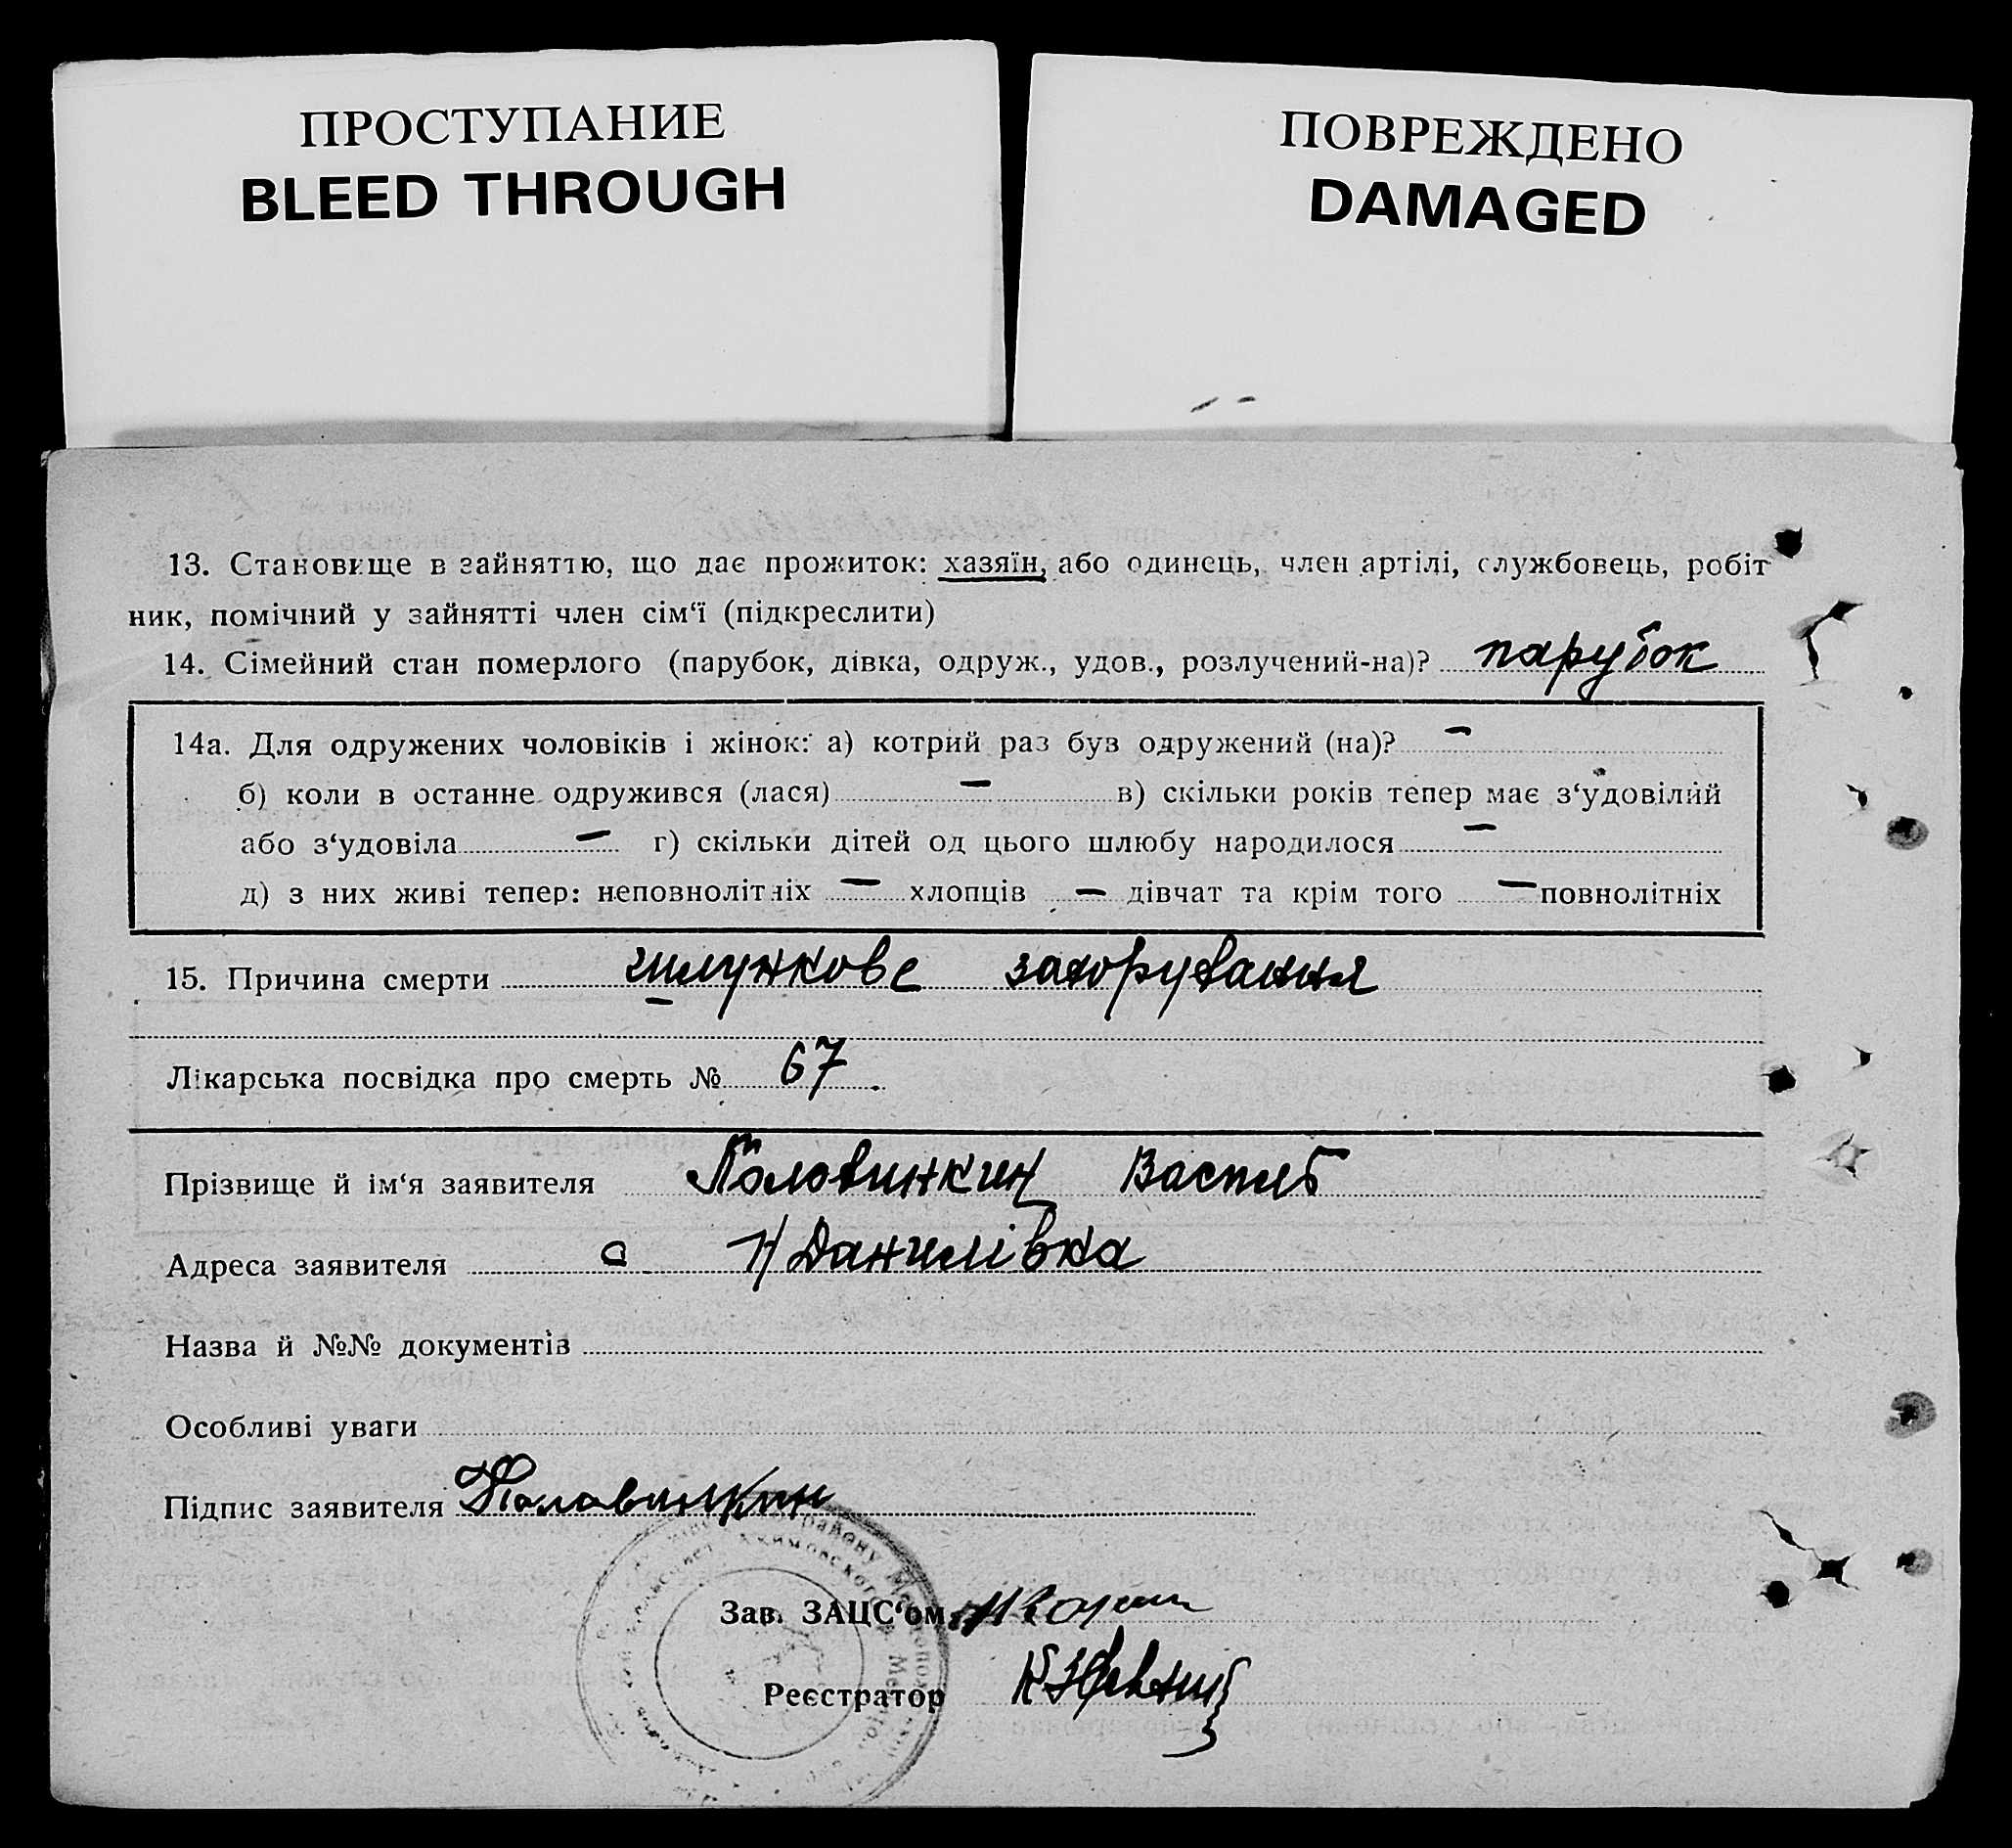 ПРОСТУПАНИЕ
BLEED THROUGH
ПОВРЕЖДЕНО
DAMAGED
13. Становище в зайняттю, що дає прожиток: хазяїн, або одинець, член артілі, службовець, робіт
ник, помічний у зайнятті член сім‘ї (підкреслити)
14. Сімейний стан померлого (парубок, дівка, одруж., удов., розлучений-на)? парубок
14а. Для одружених чоловіків і жінок: а) котрий раз був одружений (на)? —
б) коли в останне одружився (лася) — в) скільки років тепер має з‘удовілий
або з‘удовіла — г) скільки дітей од цього шлюбу народилося —
д) з них живі тепер: неповнолітніх — хлопців — дівчат та крім того — повнолітніх
15. Причина смерти шлункове захорування
Лікарська посвідка про смерть № 67
Прізвище й ім‘я заявителя Половинкин Василь
Адреса заявителя с Н/Данилівка
Назва й №№ документів
Особливі уваги
Підпис заявителя Половинкин
району
Акимовского
Зав. ЗАЦС‘ом
Реєстратор